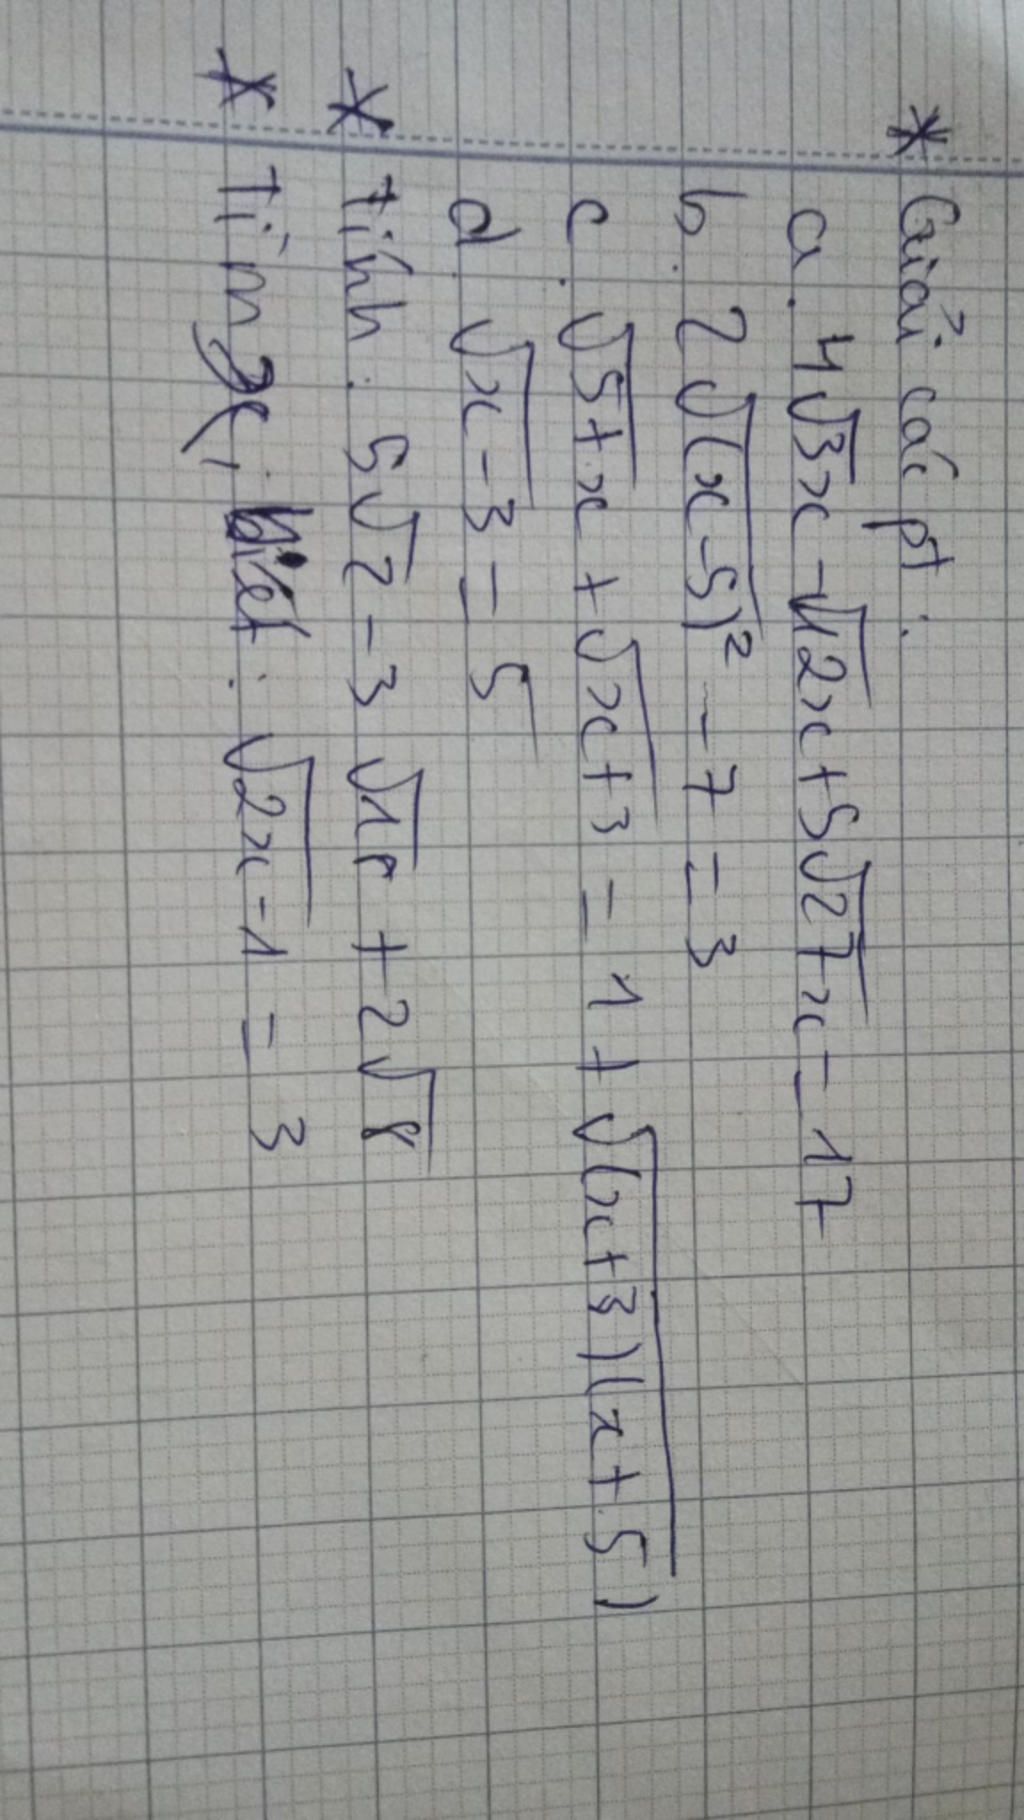 * Giải các pt :
a. 4√3x - √12x + 5√27x = 17
b. 2√(x-5)² - 7 = 3
c. √5+x + √x+3 = 1 + √(x+3)(x+5)
d. √x-3 = 5
* tính : 5√2 - 3√18 + 2√8
* Tìm x, biết : √2x-1 = 3